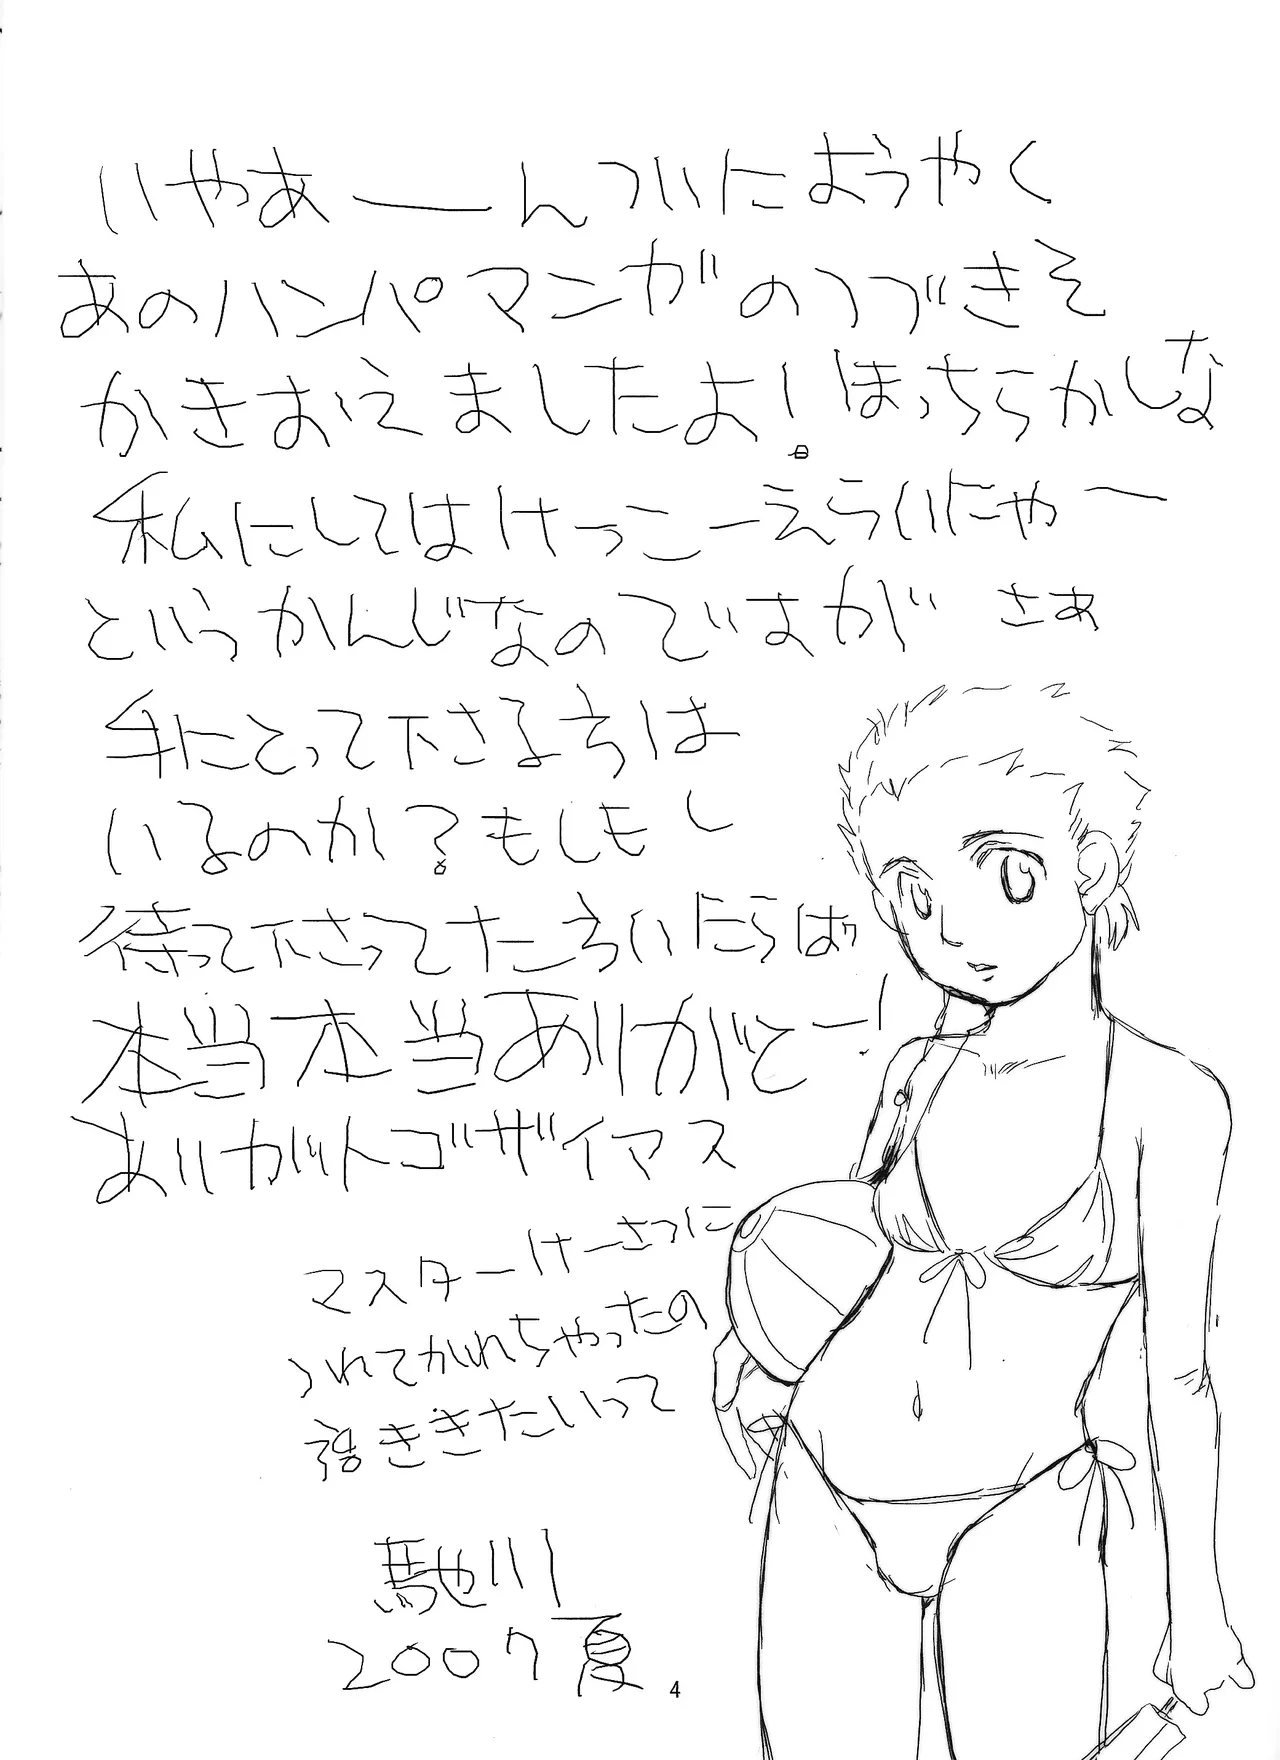 いやあーんついにようやく
あのハンパマンガのつづきそ
かきおえましたよ!ほっちらかしな
私にしてはけっこーえらいにゃー
というかんじなのですが さあ
手にとって下さる方は
いるのか?もしもし
待って下さってた方いたらば
本当本当ありがとー!
ありがットゴザイマス
マスターけーさつに
つれてかれちゃったの
ききたいって
馳川
2007夏
4